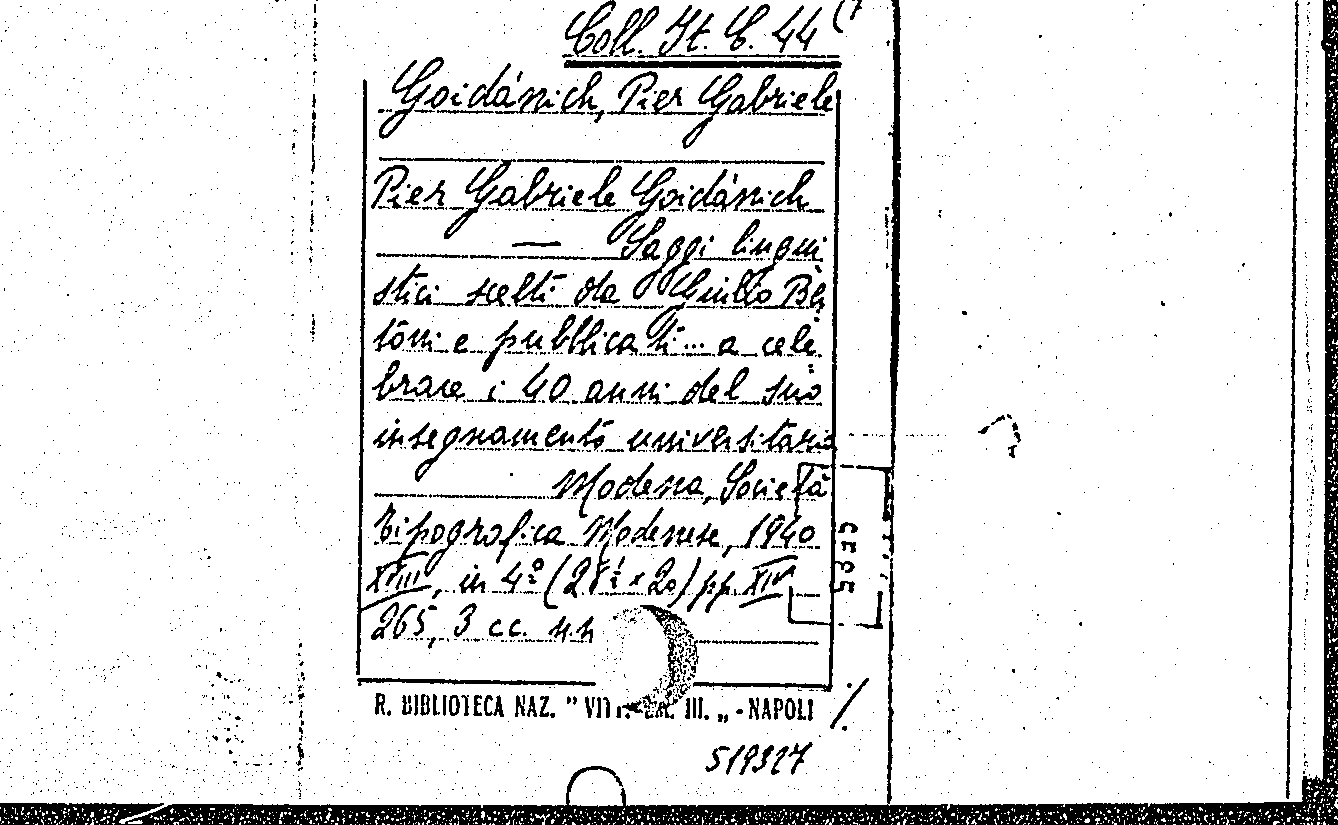 Coll. It. C. 44 (7
Goidánich, Pier Gabriele
Pier Gabriele Goidánich
— Saggi lingui
stici scelti da Giulio Ber
toni e pubblicati... a cele
brare i 40 anni del suo
insegnamento universitario
Modena, Società
tipografica Modenese, 1940
XVIII, in 4º (28½ x 20) pp. XIV
265, 3 cc. n.n
R. BIBLIOTECA NAZ. " VITT. EM. III. „ - NAPOLI
519327